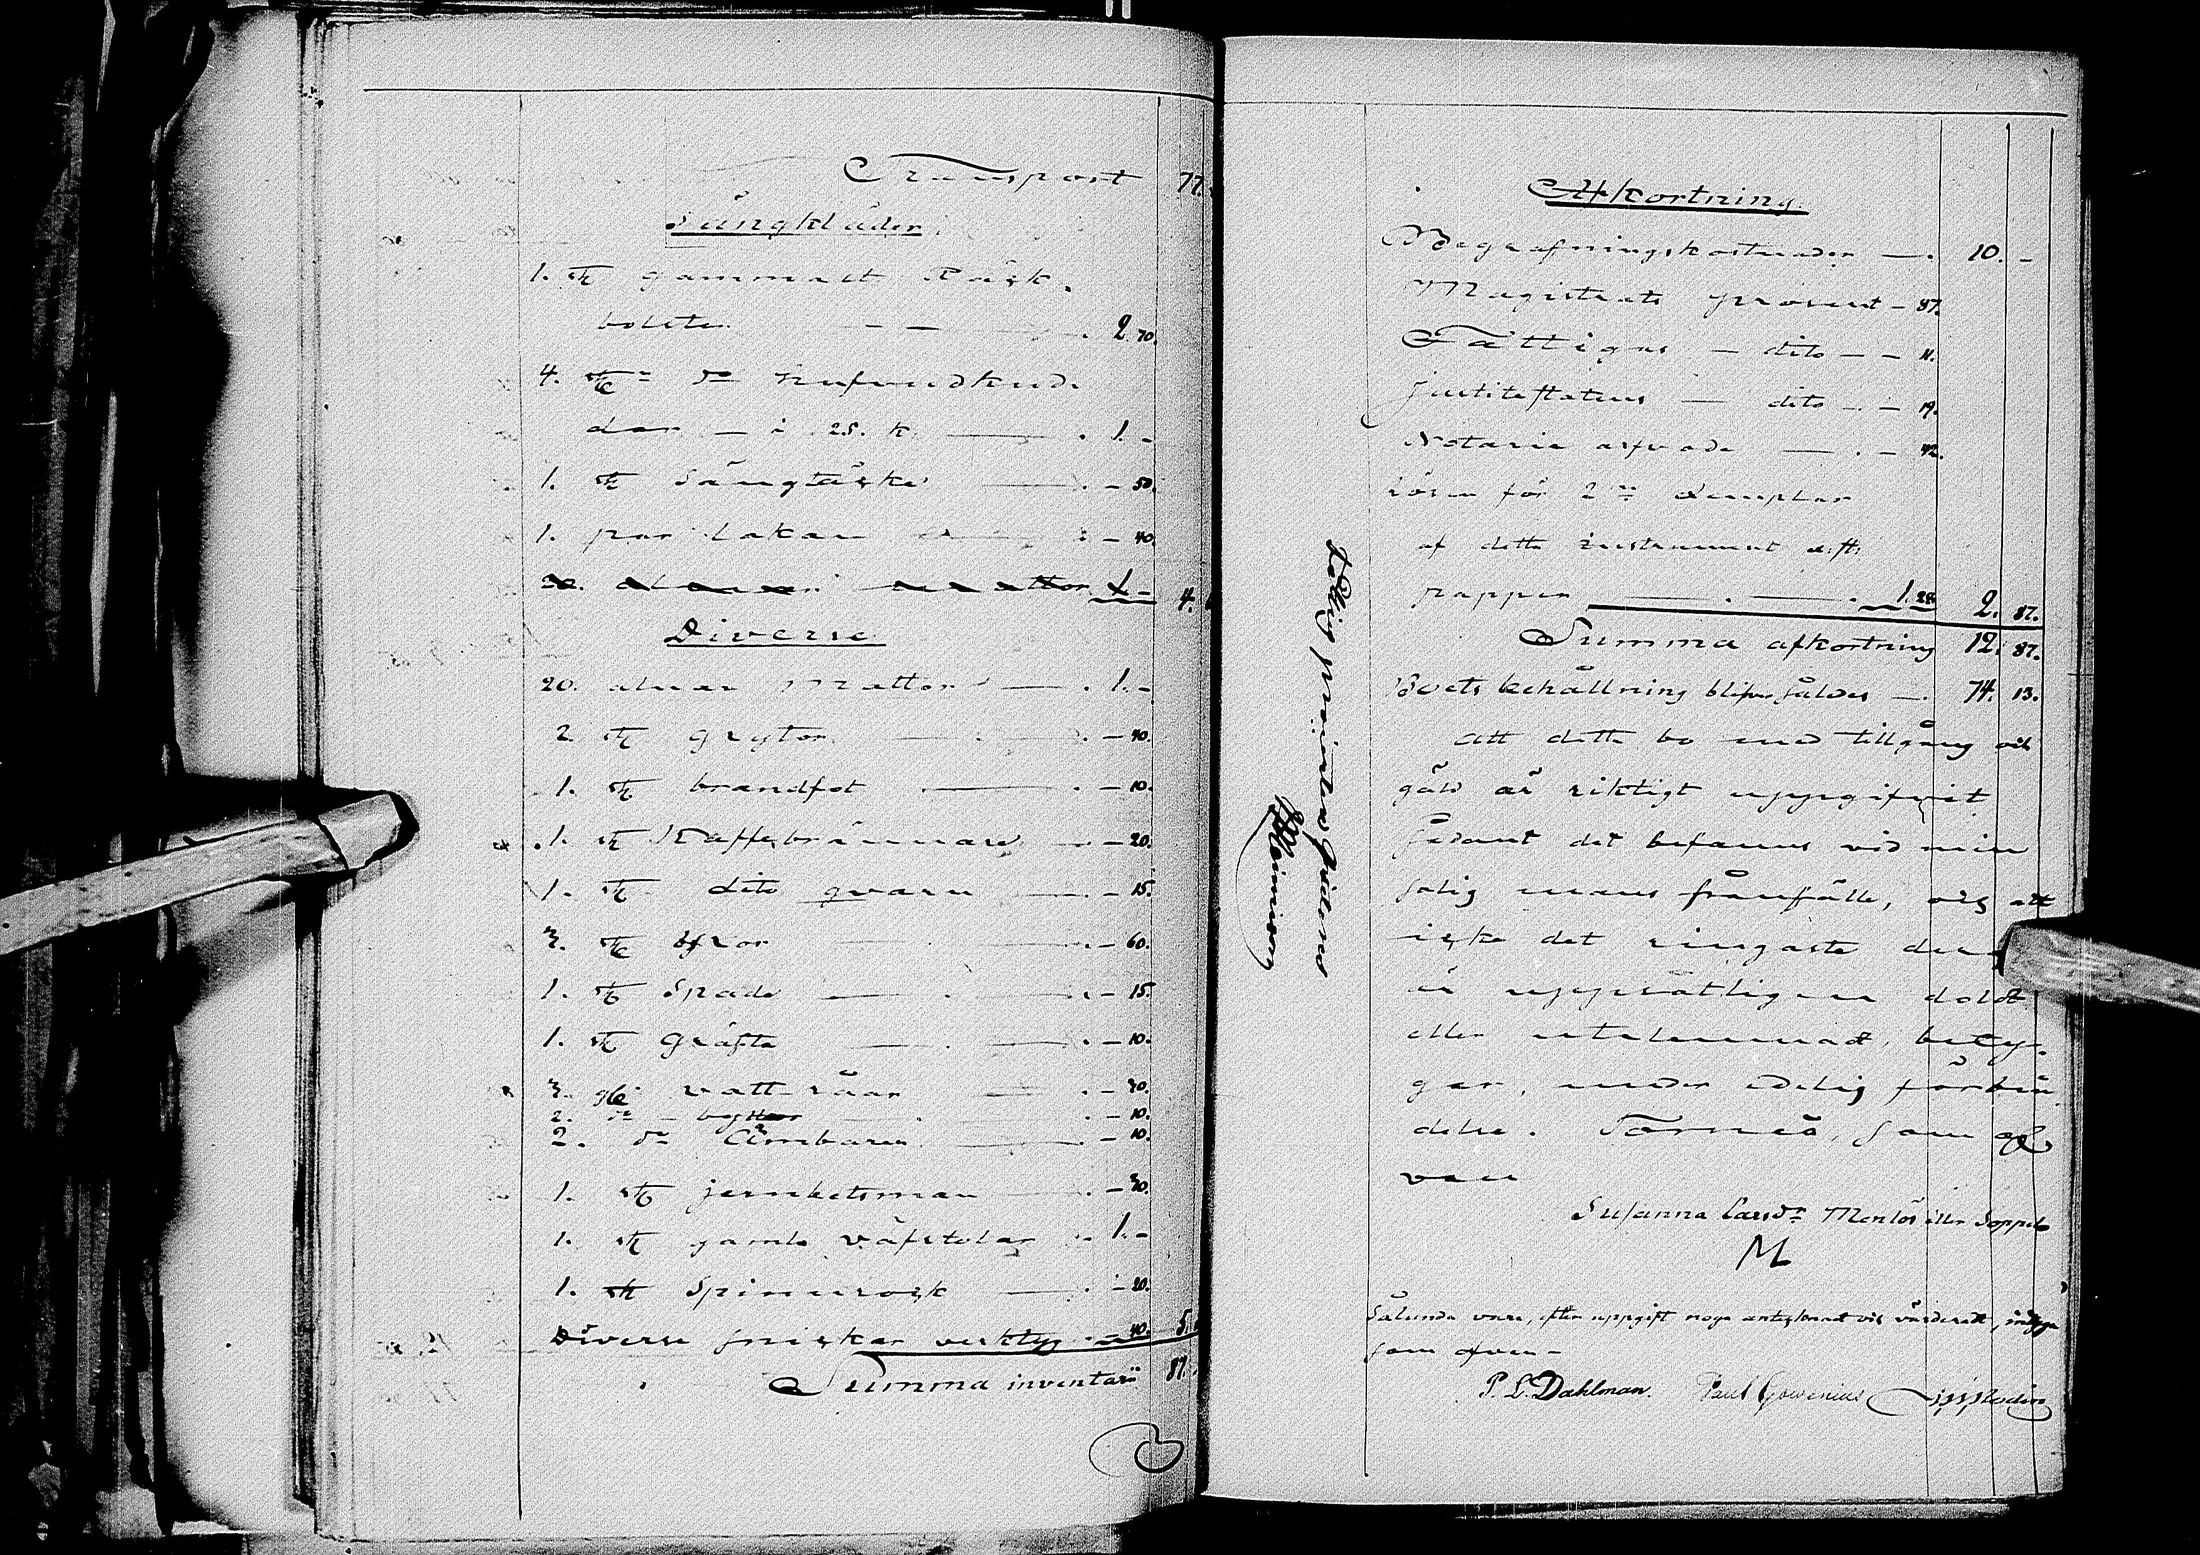 Transport 77.
Sängkläder.
1. st gammalt Räsk-
bolster — — 2. 70.
4. st:r d:o hufvudkud-
dar — i 25. k. — 1. –
1. st Sängtäske — – 50.
1. par Lakan — – 40.
alnar mattor 1 – 4.
Diverse.
20. alnar Mattor — 1. –
2. st grytor — – 40.
1. st brandfot — – 10.
1. st Kaffebrännare — – 20.
1. st dito qvarn — – 15.
3. st — – 60.
1. st Spade — – 15.
1. st gräfta — – 10.
3. gl: vatt-såar — – 30.
2. d:o byttor — – 10.
2. d:o Ämbaren — – 10.
1. st — – 30.
1. st gamla väfstolar – 1. –
1. st Spinnrock — – 20.
Diverse verktyg – 40. 5.
Summa inventarii 87.
Afkortning.
Begrafningskostnader — 10. –
Magistrats procent – 87.
Fattigas — dito – – 11.
Justitiestatens — dito – – 19.
Notarie arfvode — – 42.
Lösen för 2:ne Exemplar
af detta instrument
papper — 1. 28. 2. 87.
Summa afkortning 12. 87.
Boets behållning blifver således — 74. 13.
Att detta bo med tillgång och
gäld är riktigt uppgifvit
sådant det befanns vid min
salig mans frånfälle, och att
icke det ringaste der-
är uppsåtligen doldt
eller utelemnadt, bety-
gar, under edelig förbin-
delse. Torneå, som of-
van
Susanna Larsd:r Menlös eller Soppela
M
Sålunda vara, efter uppgift noga antecknadt och värderadt, intyga
som ofvan –
P. L. Dahlman. Paul Gowenius
Fattig procenten
Heinrison